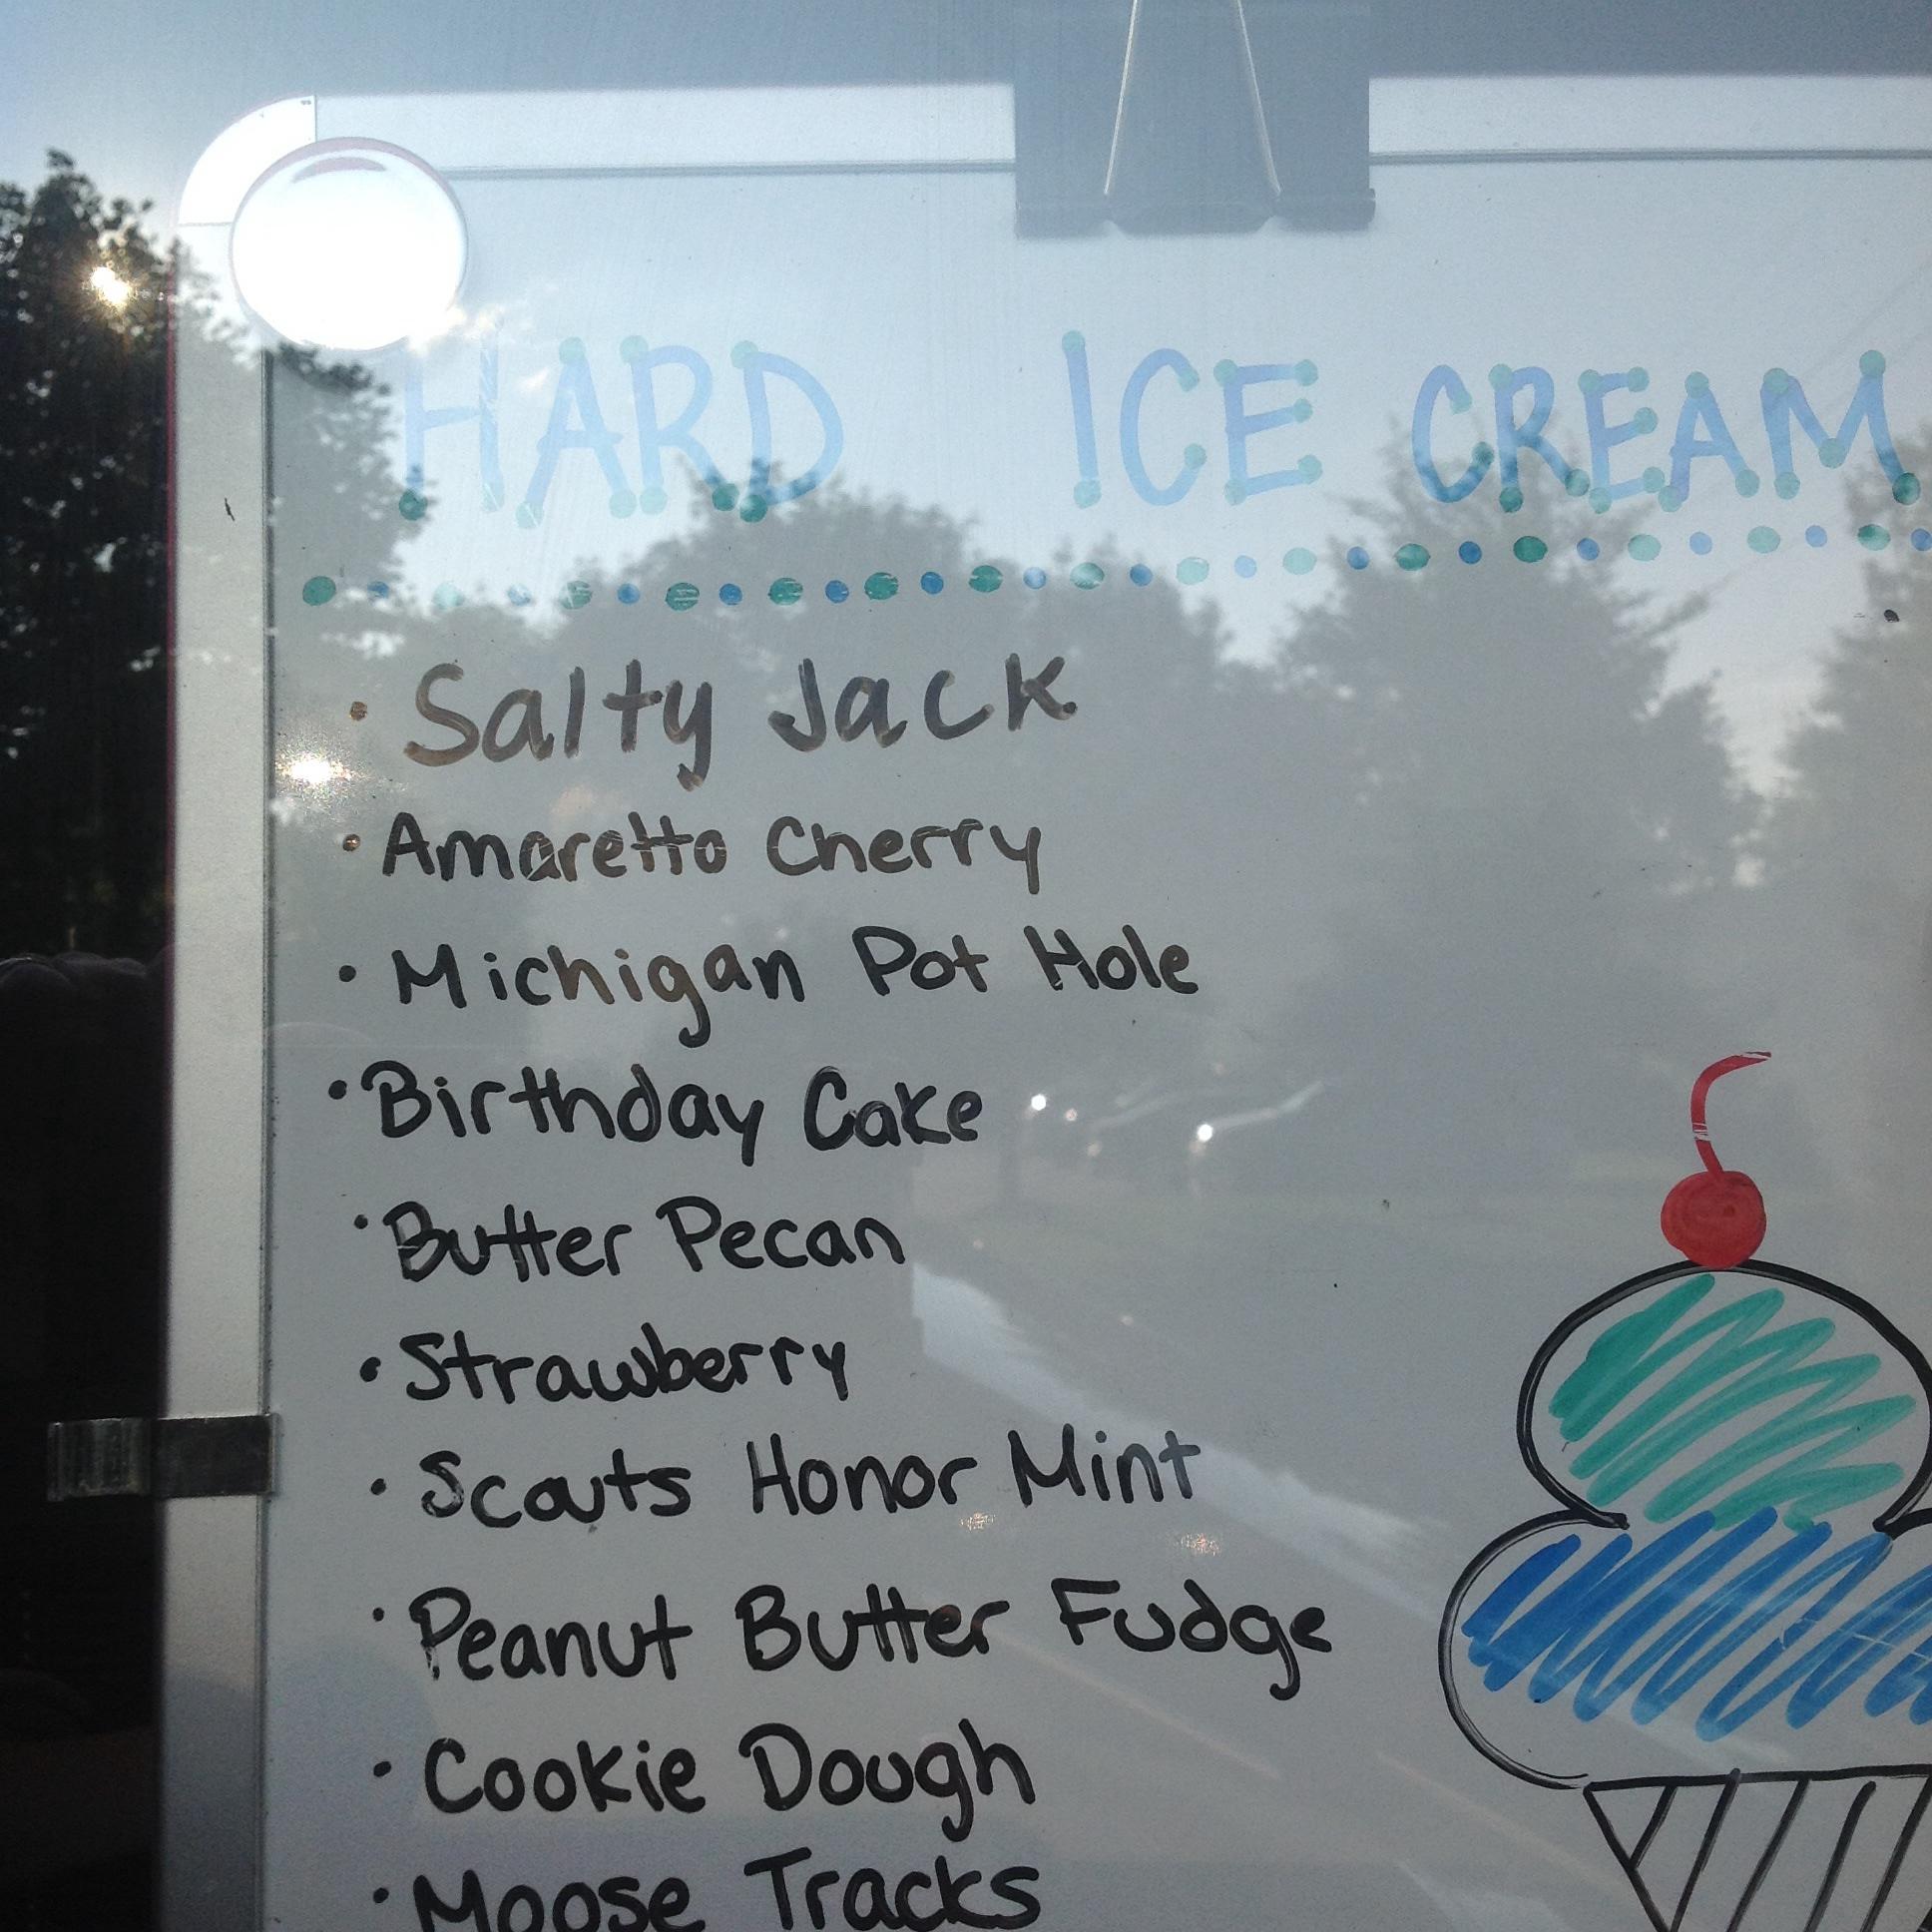 HARD ICE CREAM
• Salty Jack
• Amaretto Cherry
• Michigan Pot Hole
• Birthday Cake
• Butter Pecan
• Strawberry
• Scouts Honor Mint
• Peanut Butter Fudge
• Cookie Dough
• Moose Tracks